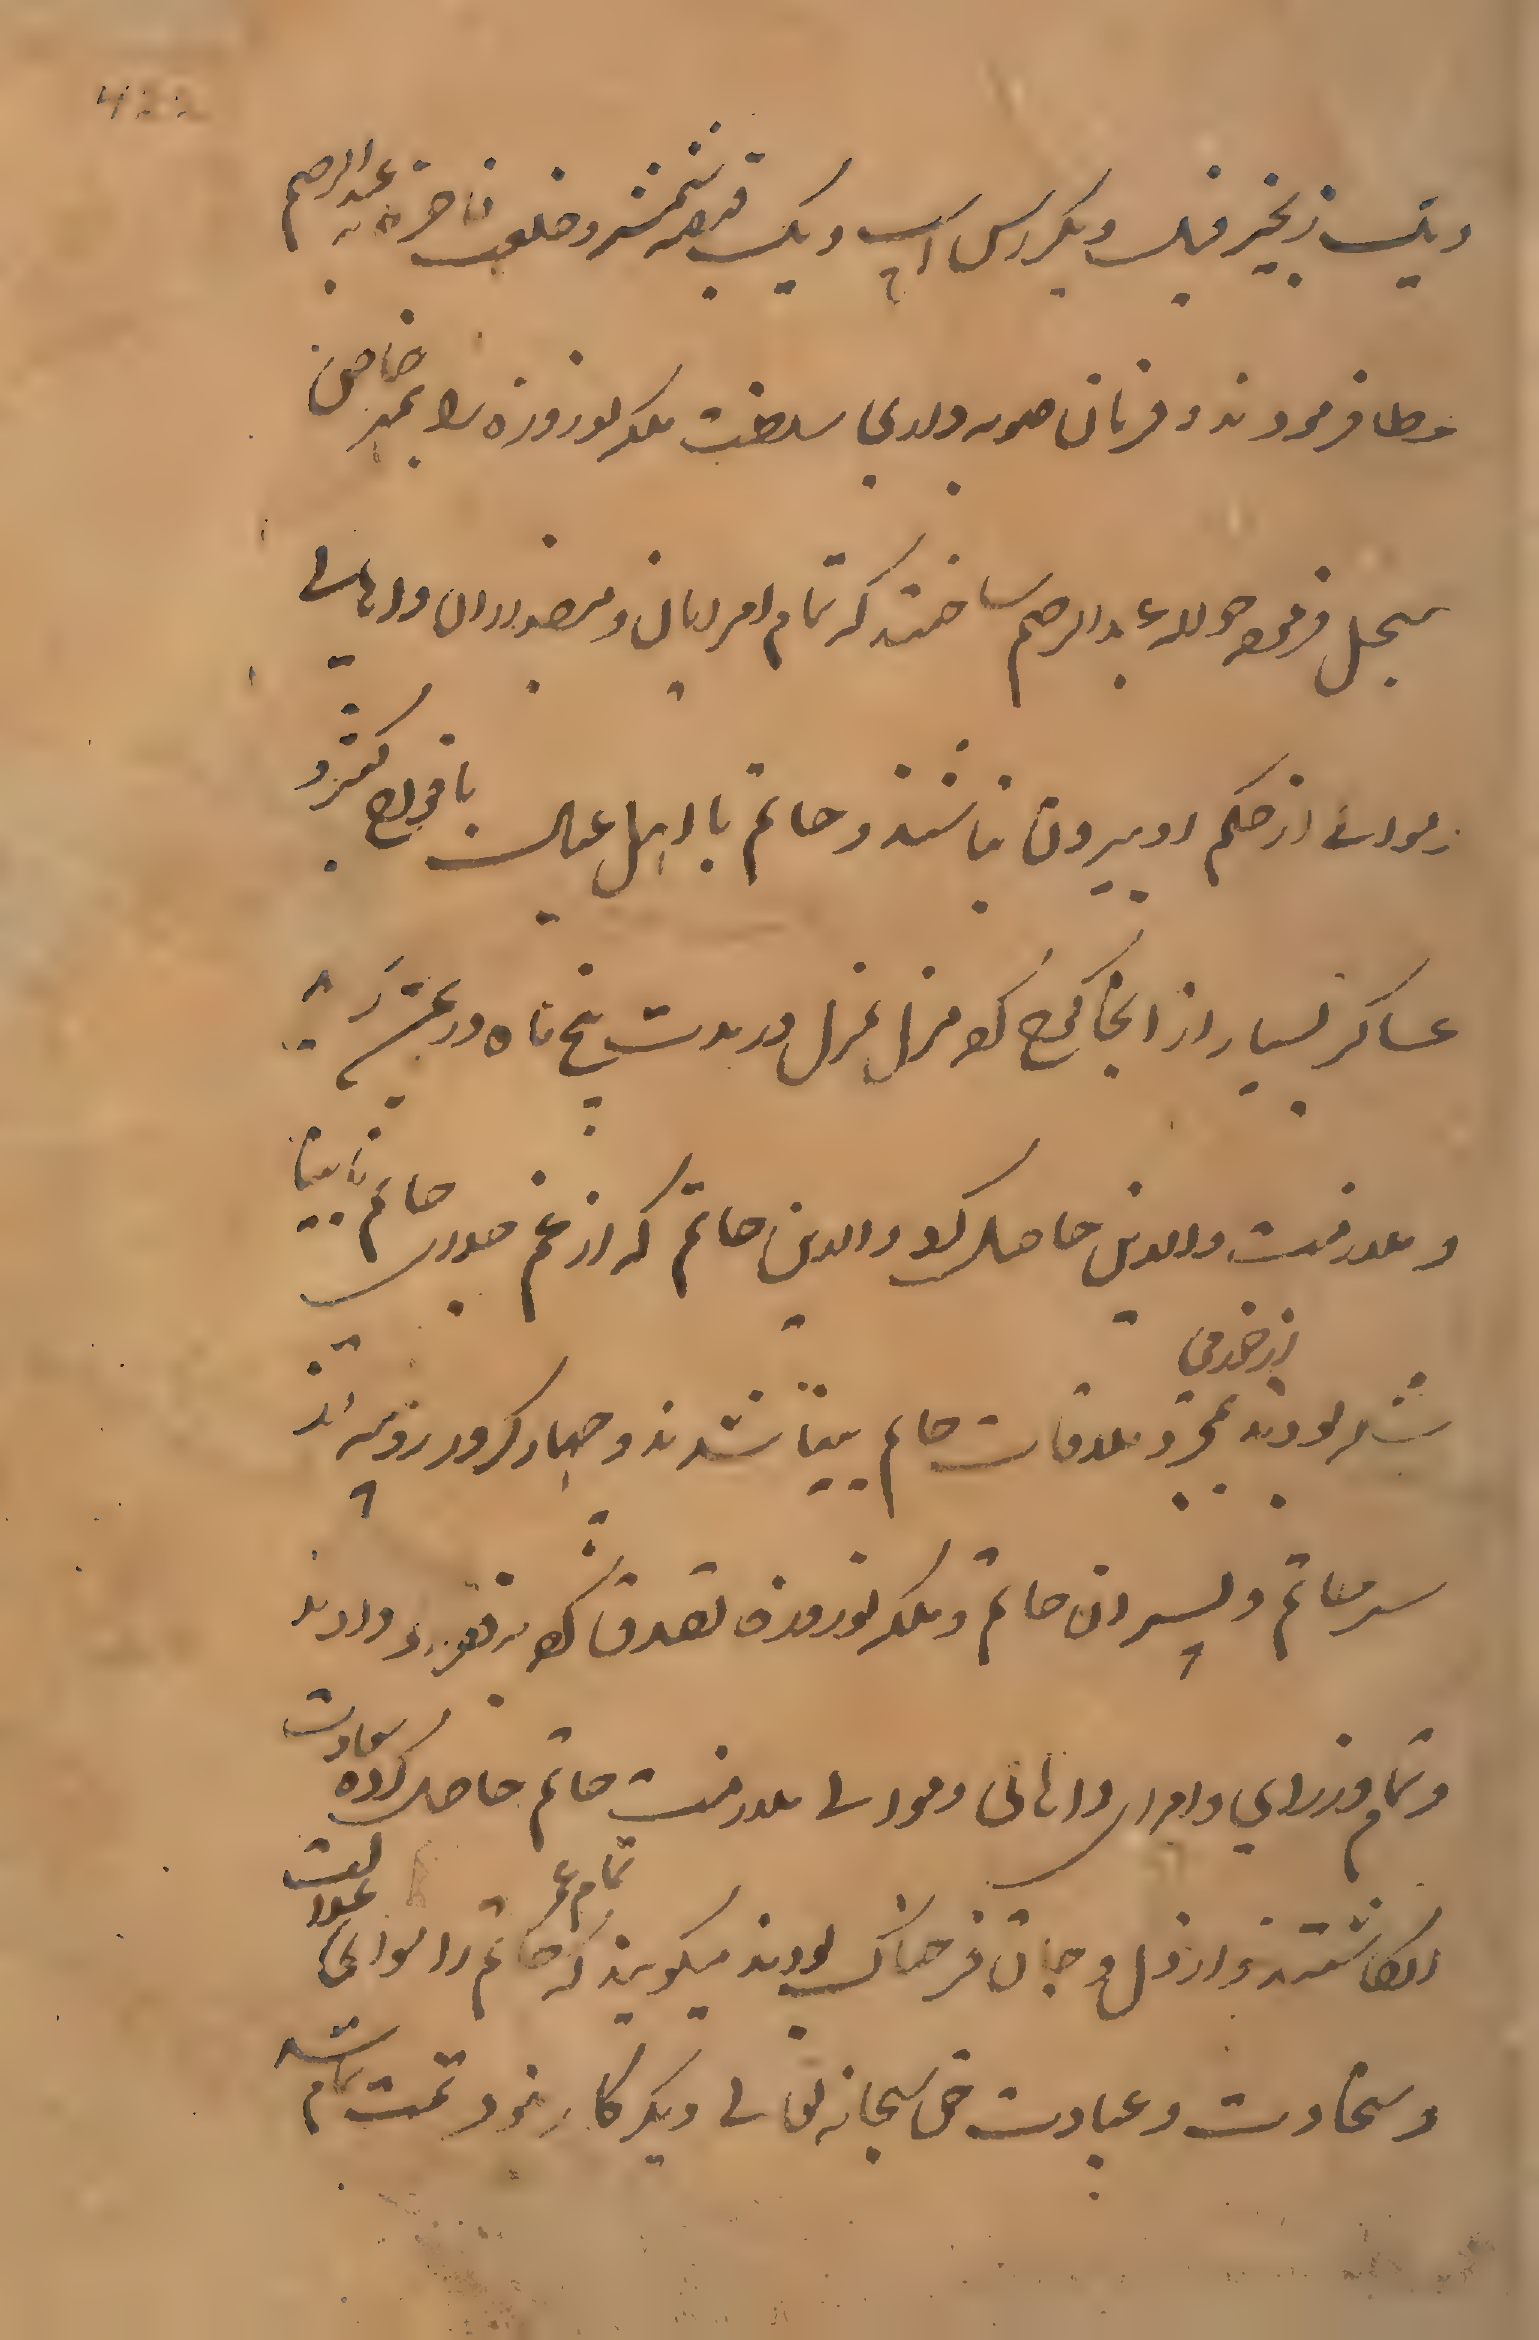 422
ویک زنجیر فیل ویکراس اسپ ویک قبضه شمشیر وخلعت فاخره به عبدالرحیم
عطا فرمودند و فرمان صوبه داری سلطنت ملکه نوروزه را بمهر خاص
سجل فرموده حواله عبدالرحیم ساختند که تمام امرایان ومنصبداران واہالے
وموالے از حکم او بیرون نباشند و حاتم با اہل عیال بافواج کثیر و
عساکر بسیار از انجا کوچ کرده منزل بمنزل در مدت پنج ماه در
و ملازمت والدین حاصل کرد والدین حاتم که از غم جدای حاتم نابینا
شده بودند بمجرد ملاقات حاتم از خرمی بینا شدند و چهار کرور روپیه از
سر حاتم و پسران حاتم و ملکه نوروزه تصدق کرده بفقراء دادند
و تمام وزرای وامرای واہالی وموالے ملازمت حاتم حاصل کرده سعادت
انکاشتند و از دل و جان فرحناک بودند میکویند که تمام عمر حاتم را سوای عدالت
و سخاوت و عبادت حق سبحانه تعالے دیکر کار نبود تمت تمام شد